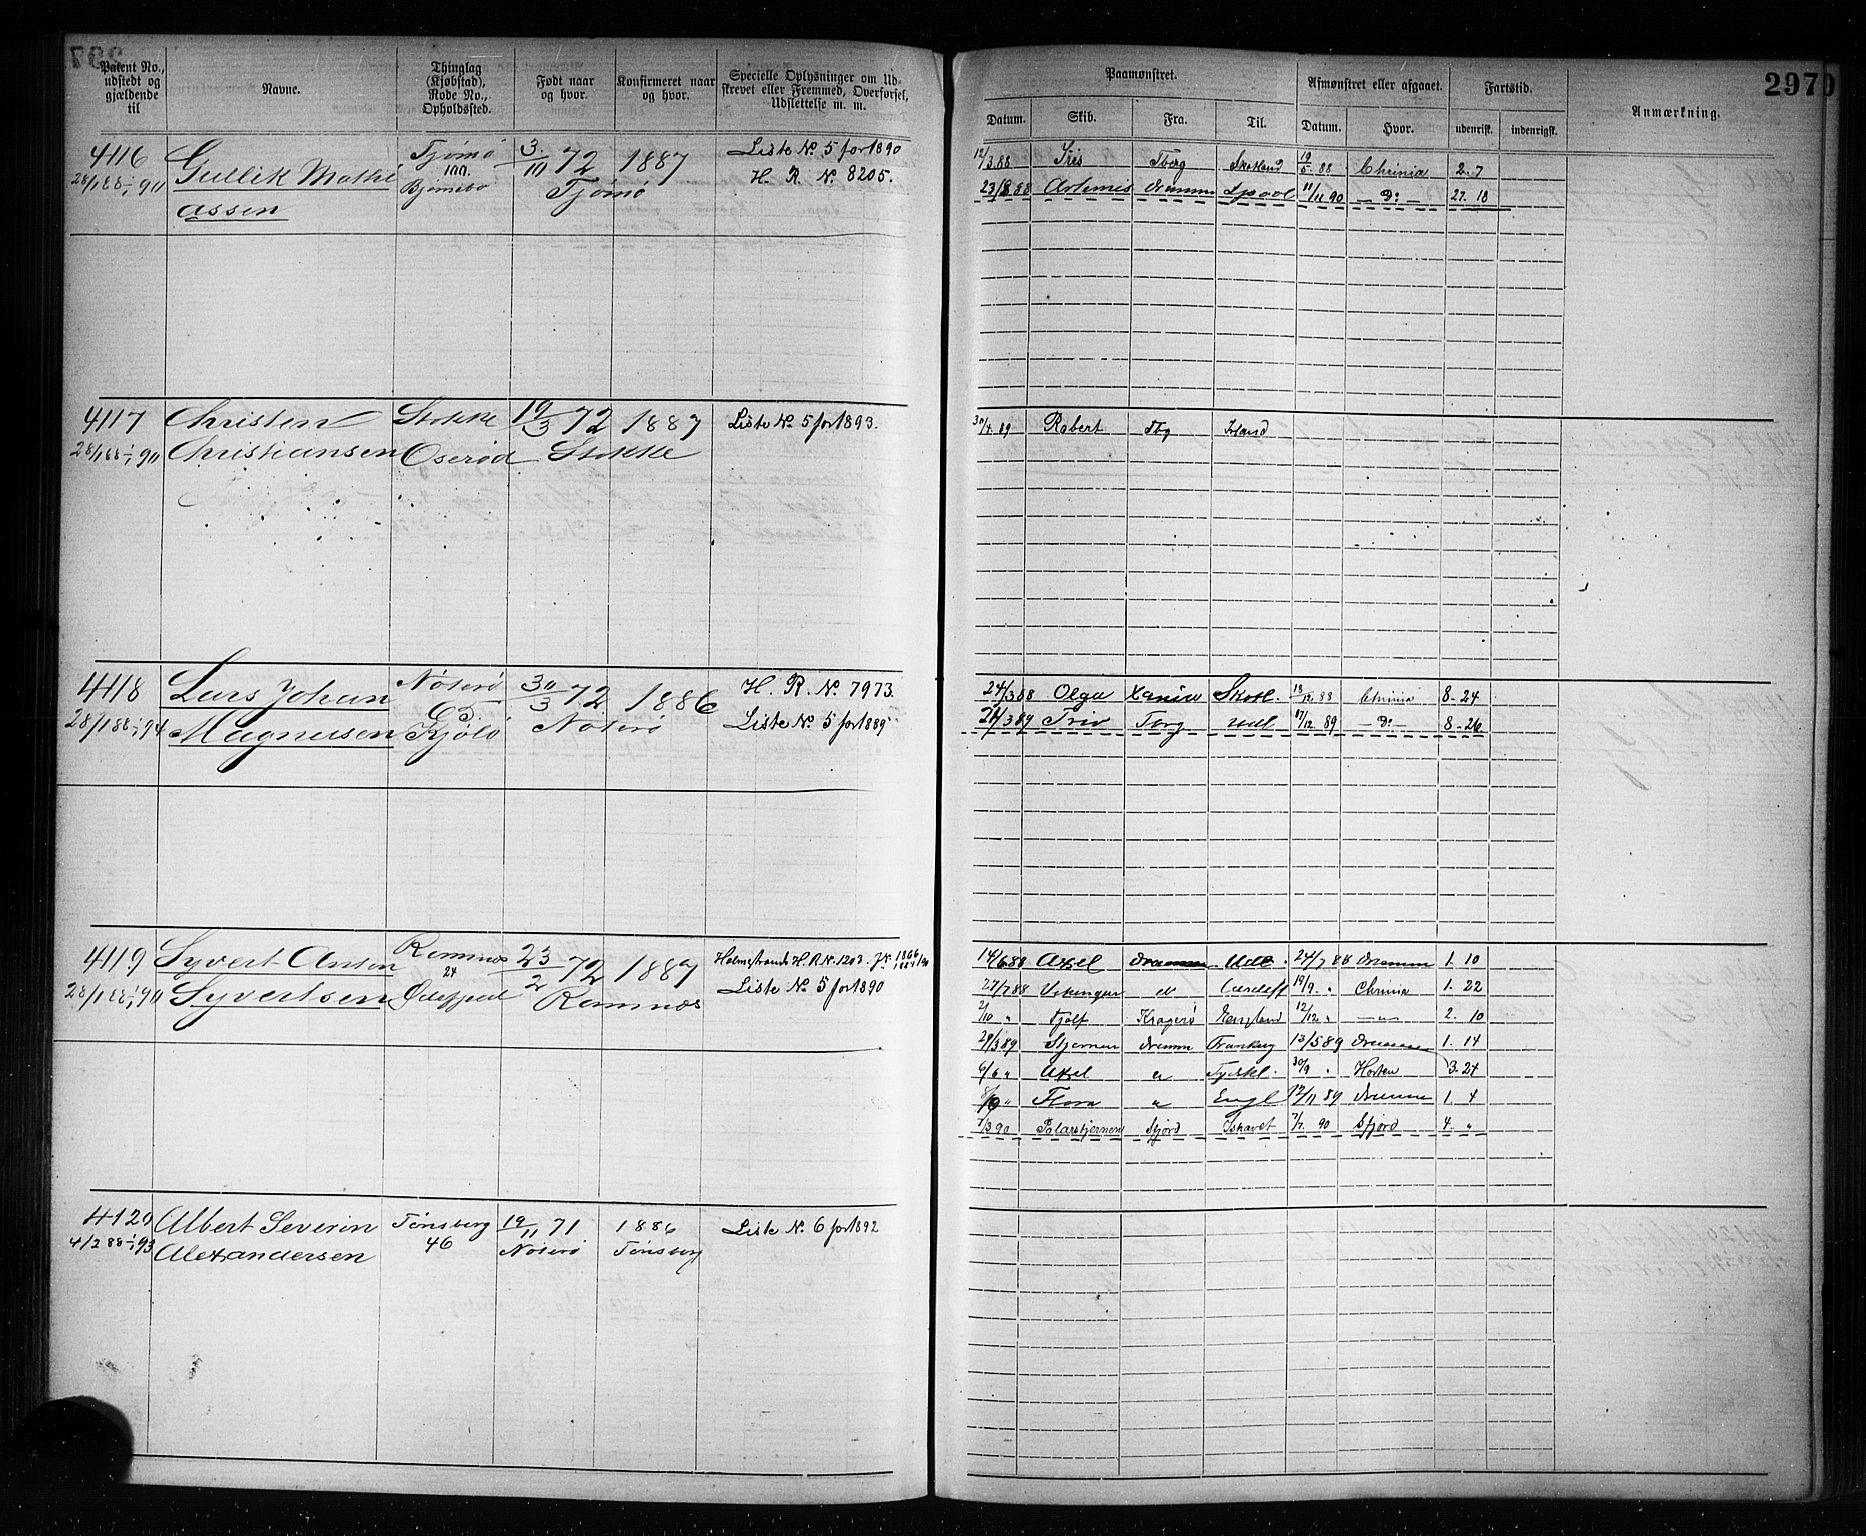 Patent No., udstedt og gjældende til
Navne.
Thinglag (Kjøbstad), Rode No., Opholdssted.
Født naar og hvor.
Konfirmeret naar og hvor.
Specielle Oplysninger om Udskrevet eller Fremmed, Overførsel, Udslettelse m. m.
Paamønstret.
Afmønstret eller afgaaet.
Fartstid.
Anmærkning.
2970
Datum. Skib. Fra. Til. Datum. Hvor. udenrigsk. indenrigsk.
4116 Gullik Mathi Tjømø 3/11 72 1887 Liste No. 5 for 1890
28/1 88 - 1/1 91 assen Tjømø H. R. No. 8205.
12/3 88 Iris Tberg Skotland 19/5 88 Chrinia 2. 7
23/8 88 Artemis Dramm 11/11 90 Do 27. 18
4117 Christen Stokke 19/3 72 1887 Liste No. 5 for 1893.
28/1 88 - 1/1 91 Christiansen Oserød Stokke
30/4. 89 Robert Tbg Irland
4118 Lars Johan Nøterø 30/3 72 1886 H. R. No. 7973.
28/1 88 - 1/1 94 Magnusen KjøLø Nøterø Liste No. 5 for 1889
24/3 88 Olga Xania Skotl. 18/12 88 Chrinia 8-24
26/3 89 Trio Tbrg Udl 17/12 89 Do 8-26
4119 Syvert Anton Ramnes 24 23/2 72 1887 Holmestrands H. R. No. 1203.
28/1 88 - 1/1 91 Syvertsen Ramnæs Liste No. 5 for 1890
14/6 88 Axel Drammen Udl. 24/7 88 Dramm 1. 10
27/7 88 Vikingen " Cardeff 19/9. " Chrinia 1. 22
2/10 " Fjolf Kragerø England 12/12 " — " — 2. 10
29/3 89 Stjernen Dramm Frankrig 13/5 89 Dramm 1. 14
6/6 " Axel " Tydskl. 30/9 " Horten 3. 24
8/10 " Flora " Engl 12/11 89 Dramm 1. 4
7/3 90 Polarstjernen Sfjord Ishavet 7/7. 90 Sfjord 4. "
4120 Albert Severin Tønsberg 19/11 71 1886 Liste No. 6 for 1892
4/2 88 - 1/1 93 Alexandersen 46 Nøterø Tønsberg